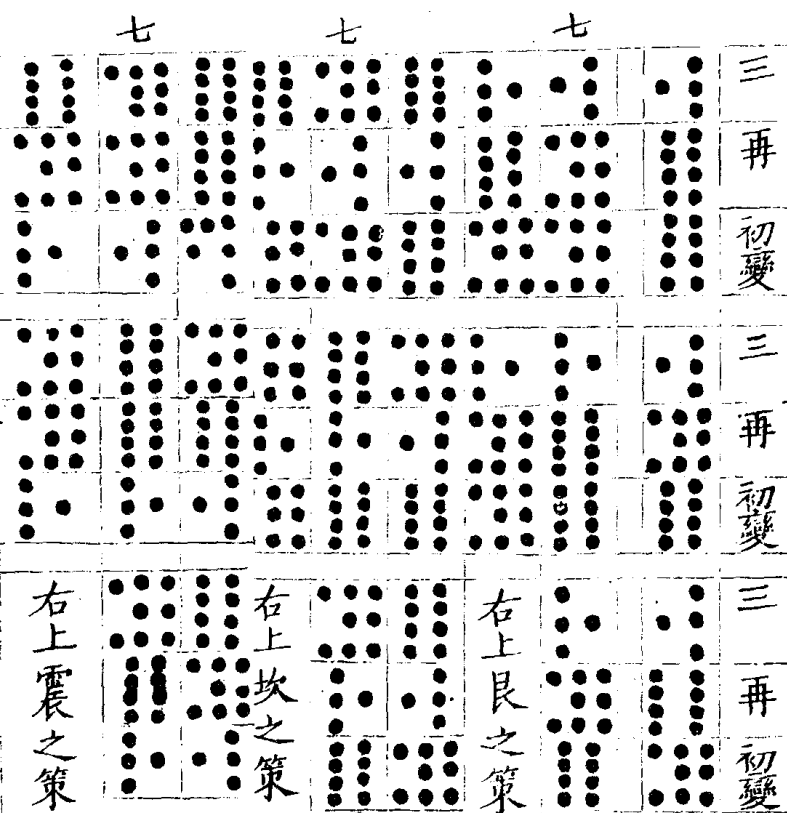 七
七
七
三
再
初變
三
再
初變
三
再
初變
右上艮之策
右上坎之策
右上震之策